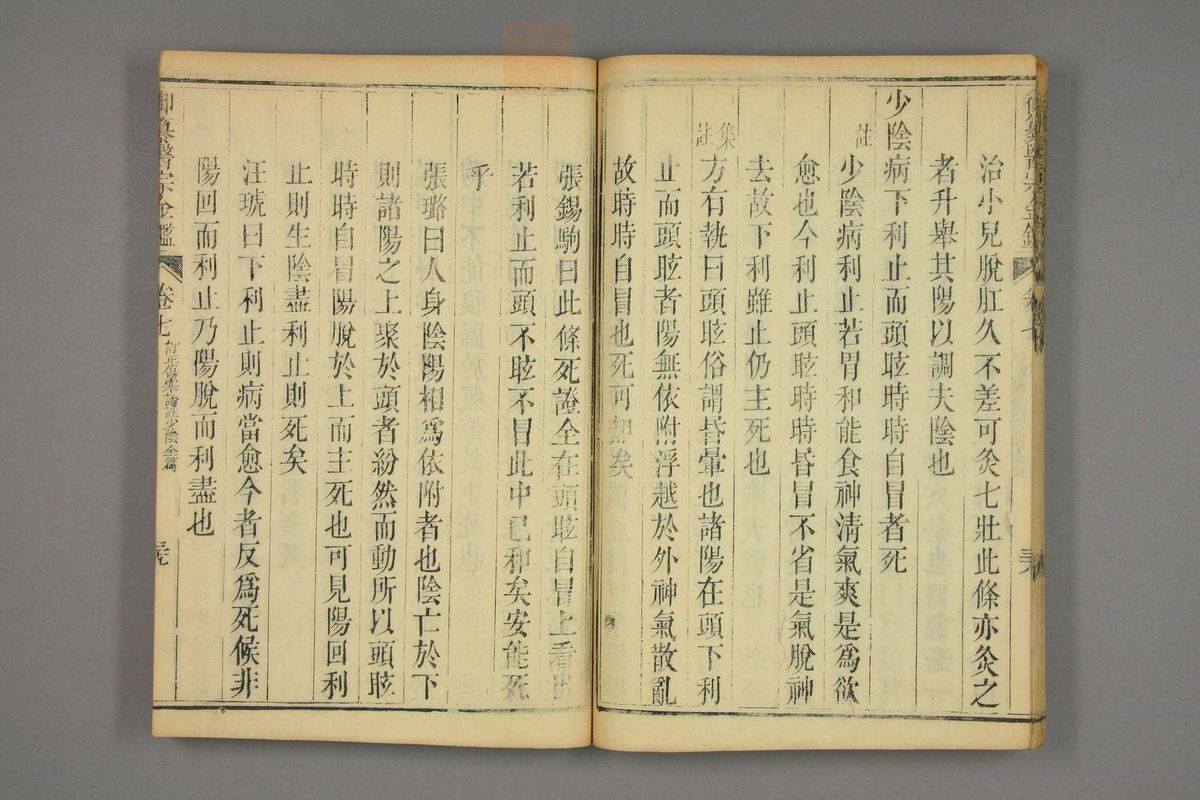 治小兒脫肛久不差可灸七壯此條亦灸之
者升舉其陽以調夫陰也
少陰病下利止而頭眩時時自冒者死
註 少陰病利止若胃和能食神清氣爽是為欲
愈也今利止頭眩時時昏冒不省是氣脫神
去故下利雖止仍主死也
集註 方有執曰頭眩俗謂昏暈也諸陽在頭下利
止而頭眩者陽無依附浮越於外神氣散亂
故時時自冒也死可知矣
張錫駒曰此條死證全在頭眩自冒上看出
若利止而頭不眩不冒此中已和矣安能死
乎
張璐曰人身陰陽相為依附者也陰亡於下
則諸陽之上聚於頭者紛然而動所以頭眩
時時自冒陽脫於上而主死也可見陽回利
止則生陰盡利止則死矣
汪琥曰下利止則病當愈今者反為死候非
陽回而利止乃陽脫而利盡也
御纂醫宗金鑑 卷七 訂正傷寒論註少陰全篇